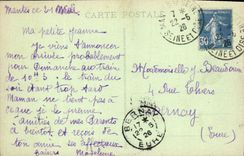 Mantes le 21
CARTE POSTALE
Ma petite Jeanne
Je viens t'annoncer
mon arrivée probablement
pour dimanche au train
de 10h3. le train du
soir étant trop tard
Maman ne tient pas à ce
que je
l'amitiés de mes Parents
à bientôt et reçois de
ton amie ses affectueux
baisers Madeleine
Mademoiselle J. Beaudouin
4 Rue Thiers
Bernay
(Eure)
22-6
28
SEINE ET OISE
BERNAY
28
EURE